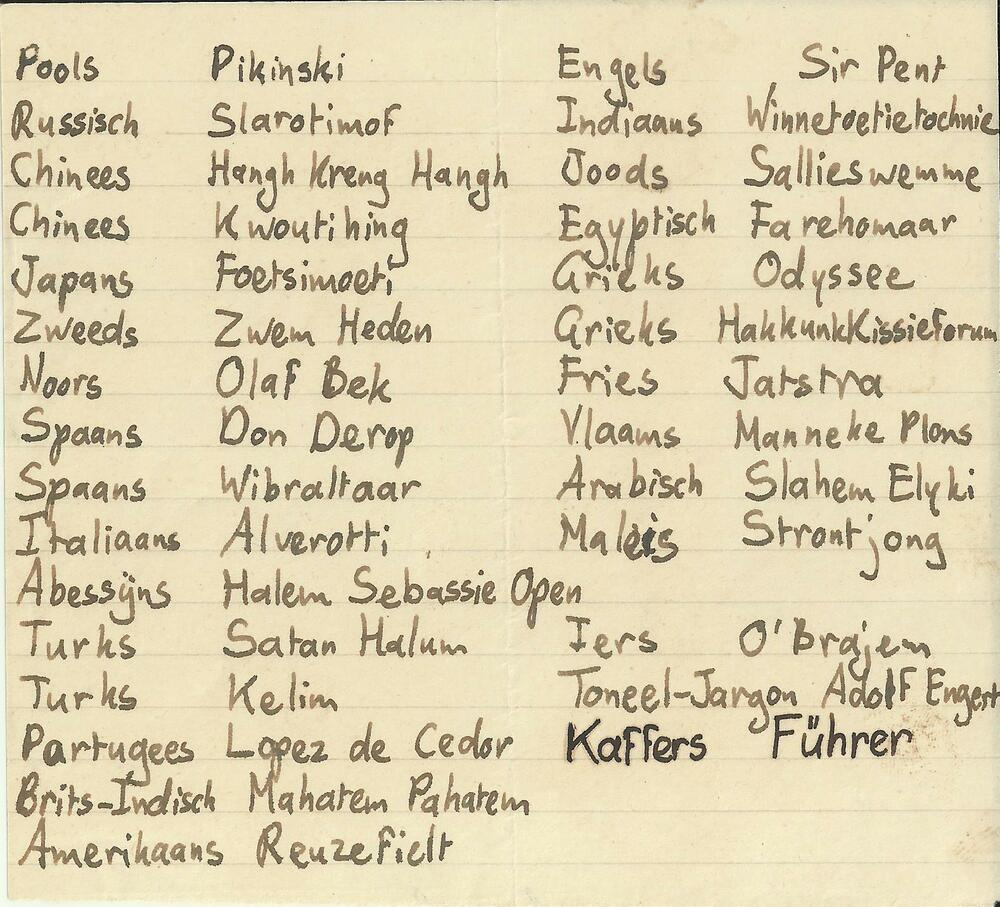 Pools Pikinski
Russisch Slarotimof
Chinees Hangh Kreng Hangh
Chinees Kwoutihing
Japans Foetsimoeti
Zweeds Zwem Heden
Noors Olaf Bek
Spaans Don Derop
Spaans Wibraltaar
Italiaans Alverotti
Abessijns Halem Sebassie Open
Turks Satan Halum
Turks Kelim
Partugees Lopez de Cedor
Brits-Indisch Mahatem Pahatem
Amerikaans Reuzefielt
Engels Sir Pent
Indiaans Winnetoetietochnie
Joods Sallieswemme
Egyptisch Farehomaar
Grieks Odyssee
Grieks HakkunkKissieforum
Fries Jatstra
Vlaams Manneke Plons
Arabisch Slahem Elyki
Maleis Strontjong
Iers O'Brajem
Toneel-Jargon Adolf Engert
Kaffers Führer